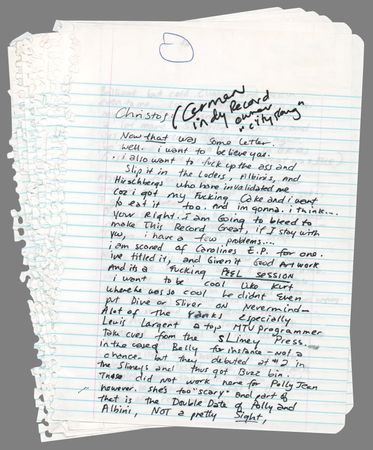 Christos (German
indy Record
owner
"city slang"
Now that was some letter.
well. i want to believe you.
. i also want to fuck up the ass and
Slip it in the Loders, Albinis, and
Hirschbergs who have invalidated me
Coz i got my Fucking Cake and i want
to eat it too. And im gonna. i think...
your Right. I am Going to bleed to
make This Record Great, if I stay with
you, i have a few problems....
i am scared of Carolines E.P. for one.
ive titled it, and Given it Good Artwork
And its a fucking PEEL SESSION
i want to be cool Like Kurt
where he was so cool he didnt Even
put Dive or Sliver on Nevermind—
Alot of the Yanks especially
Lewis Largent a top MTV programmer
Take cues from the SLimey Press.
in the case of Belly for instance - Not a
chance. but they debuted at #2 in
the Slimeys and thus got Buzz bin.
Those did not work here for Polly Jean
however. She's too "scary" and part of
that is the Double Date of Polly and
Albini, NOT a pretty Sight,